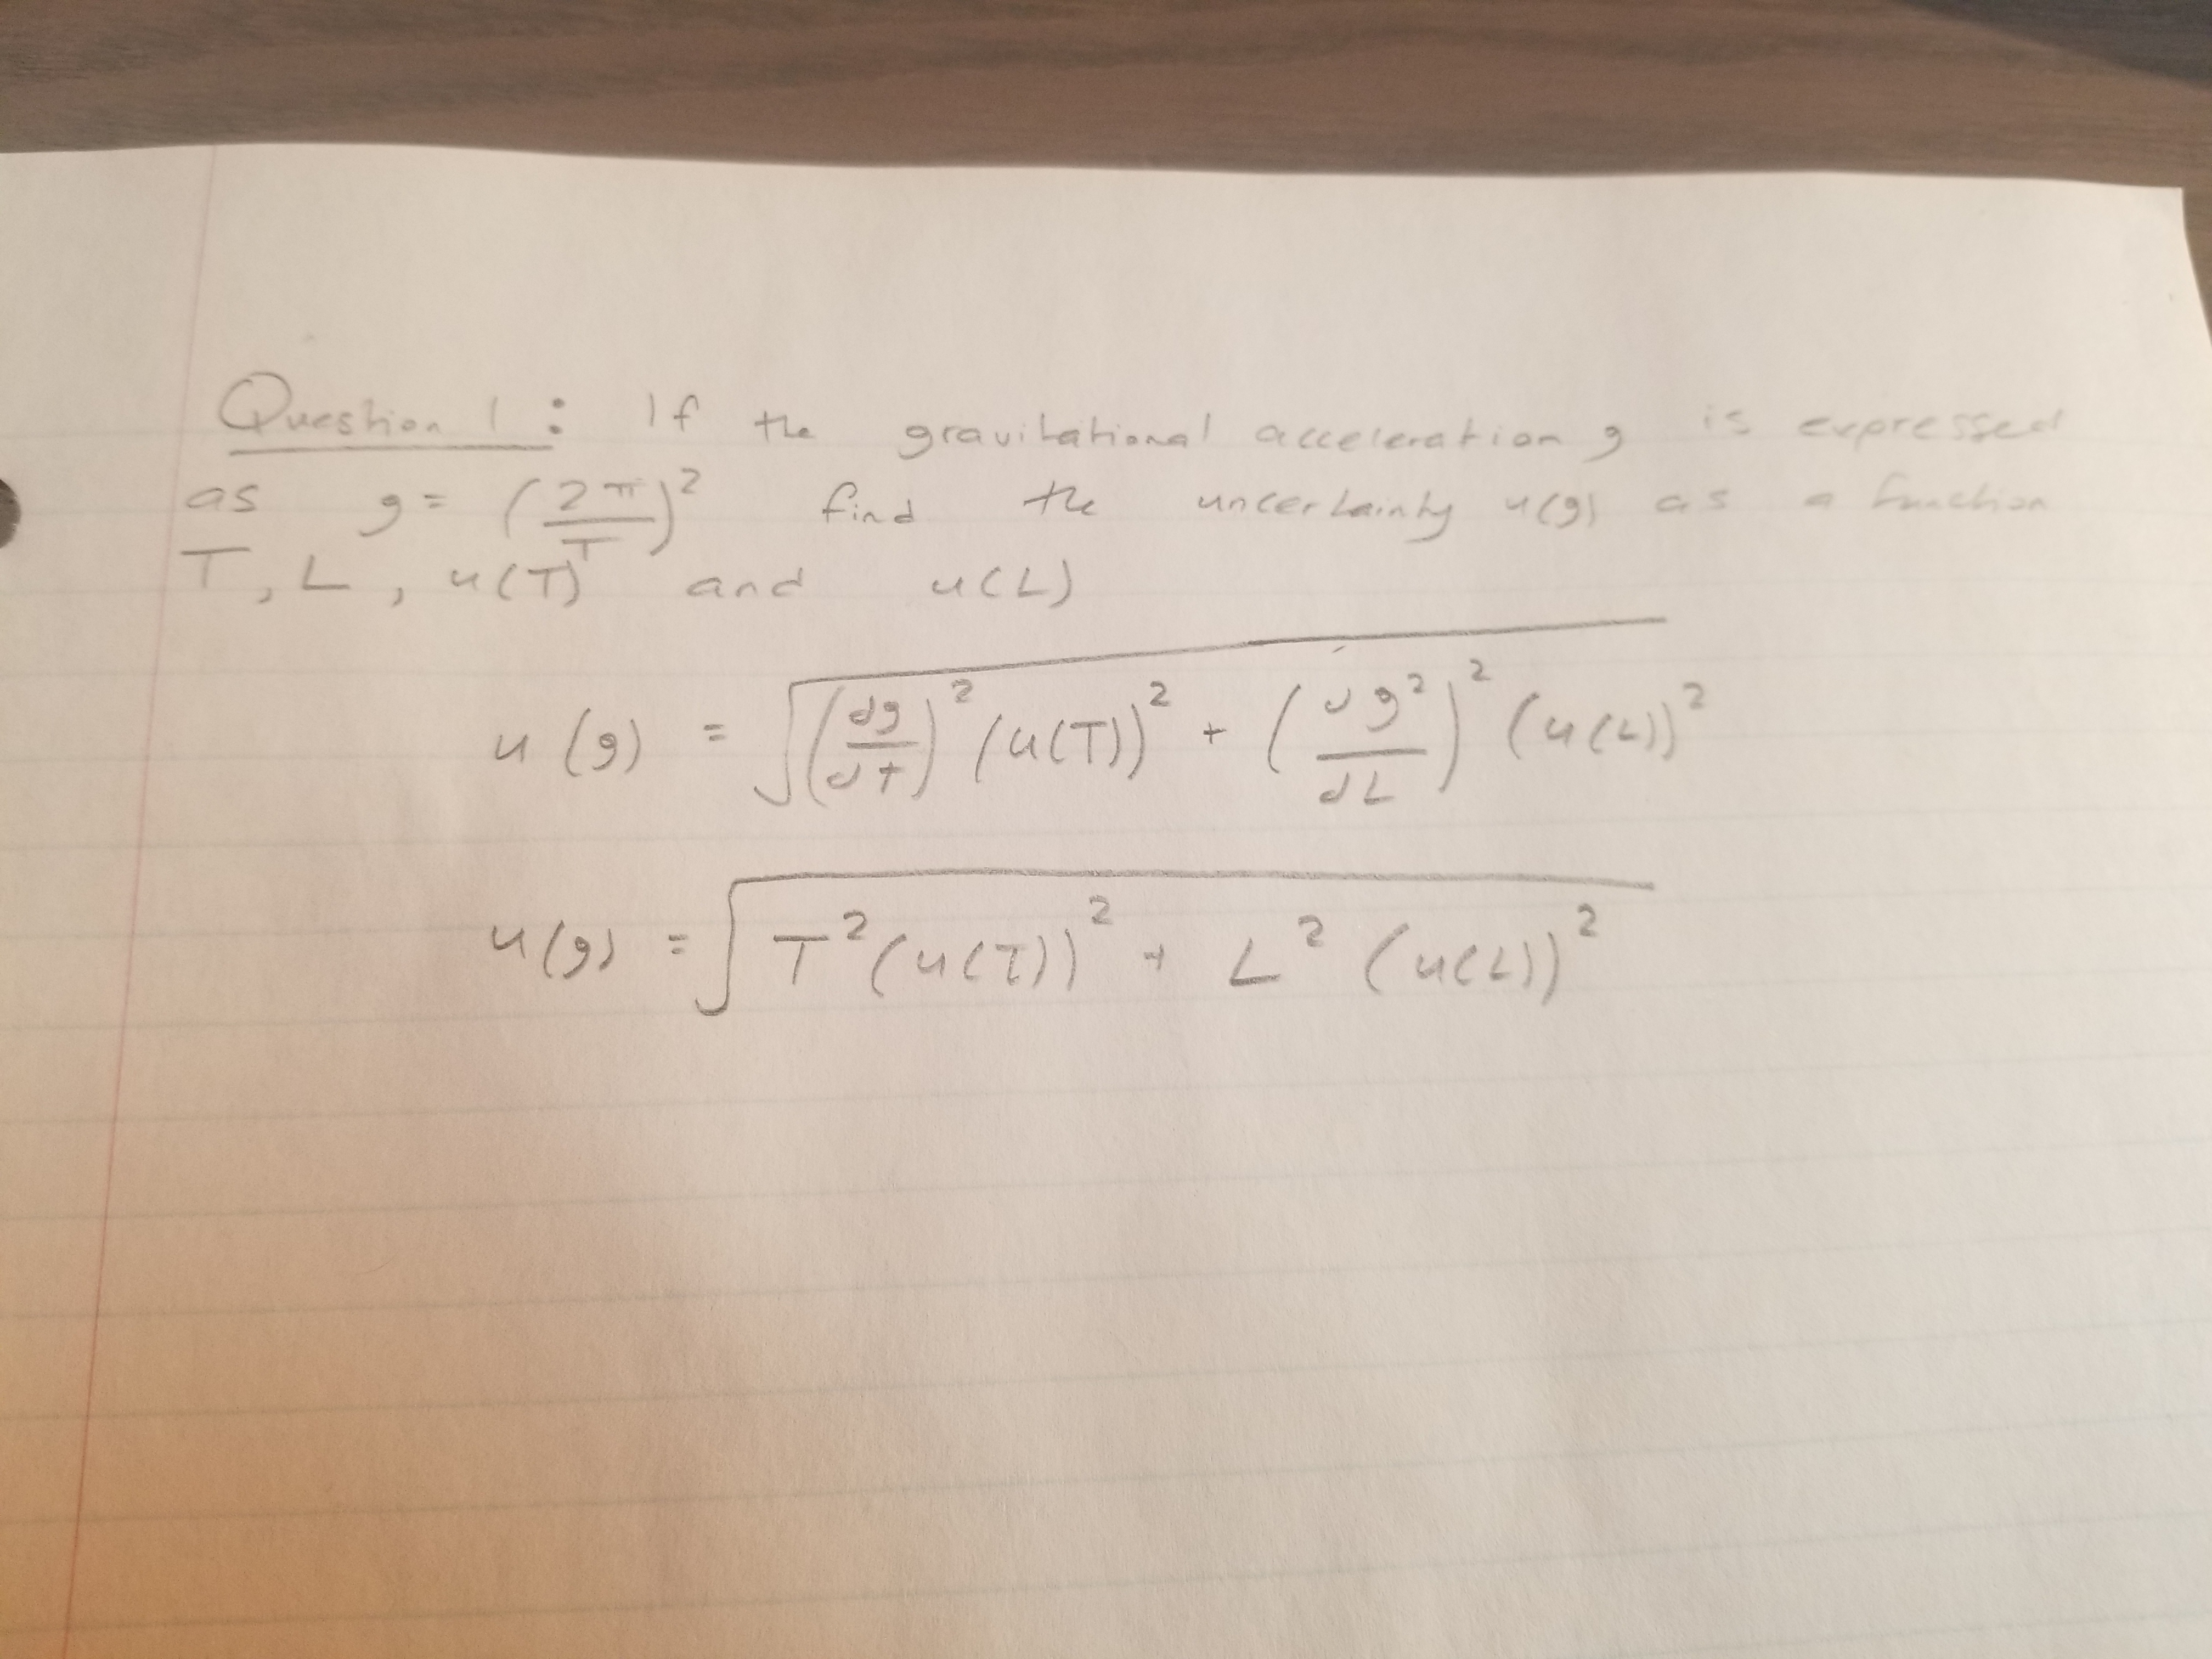 Question 1 : If the gravitational acceleration g is expressed
as g = (2π/T)² find the uncertainty u(g) as a function
T, L, u(T) and u(L)
u(g) = √((dg/dT)² (u(T))² + (dg²/dL)² (u(L))²)
u(g) = √(T² (u(T))² + L² (u(L))²)